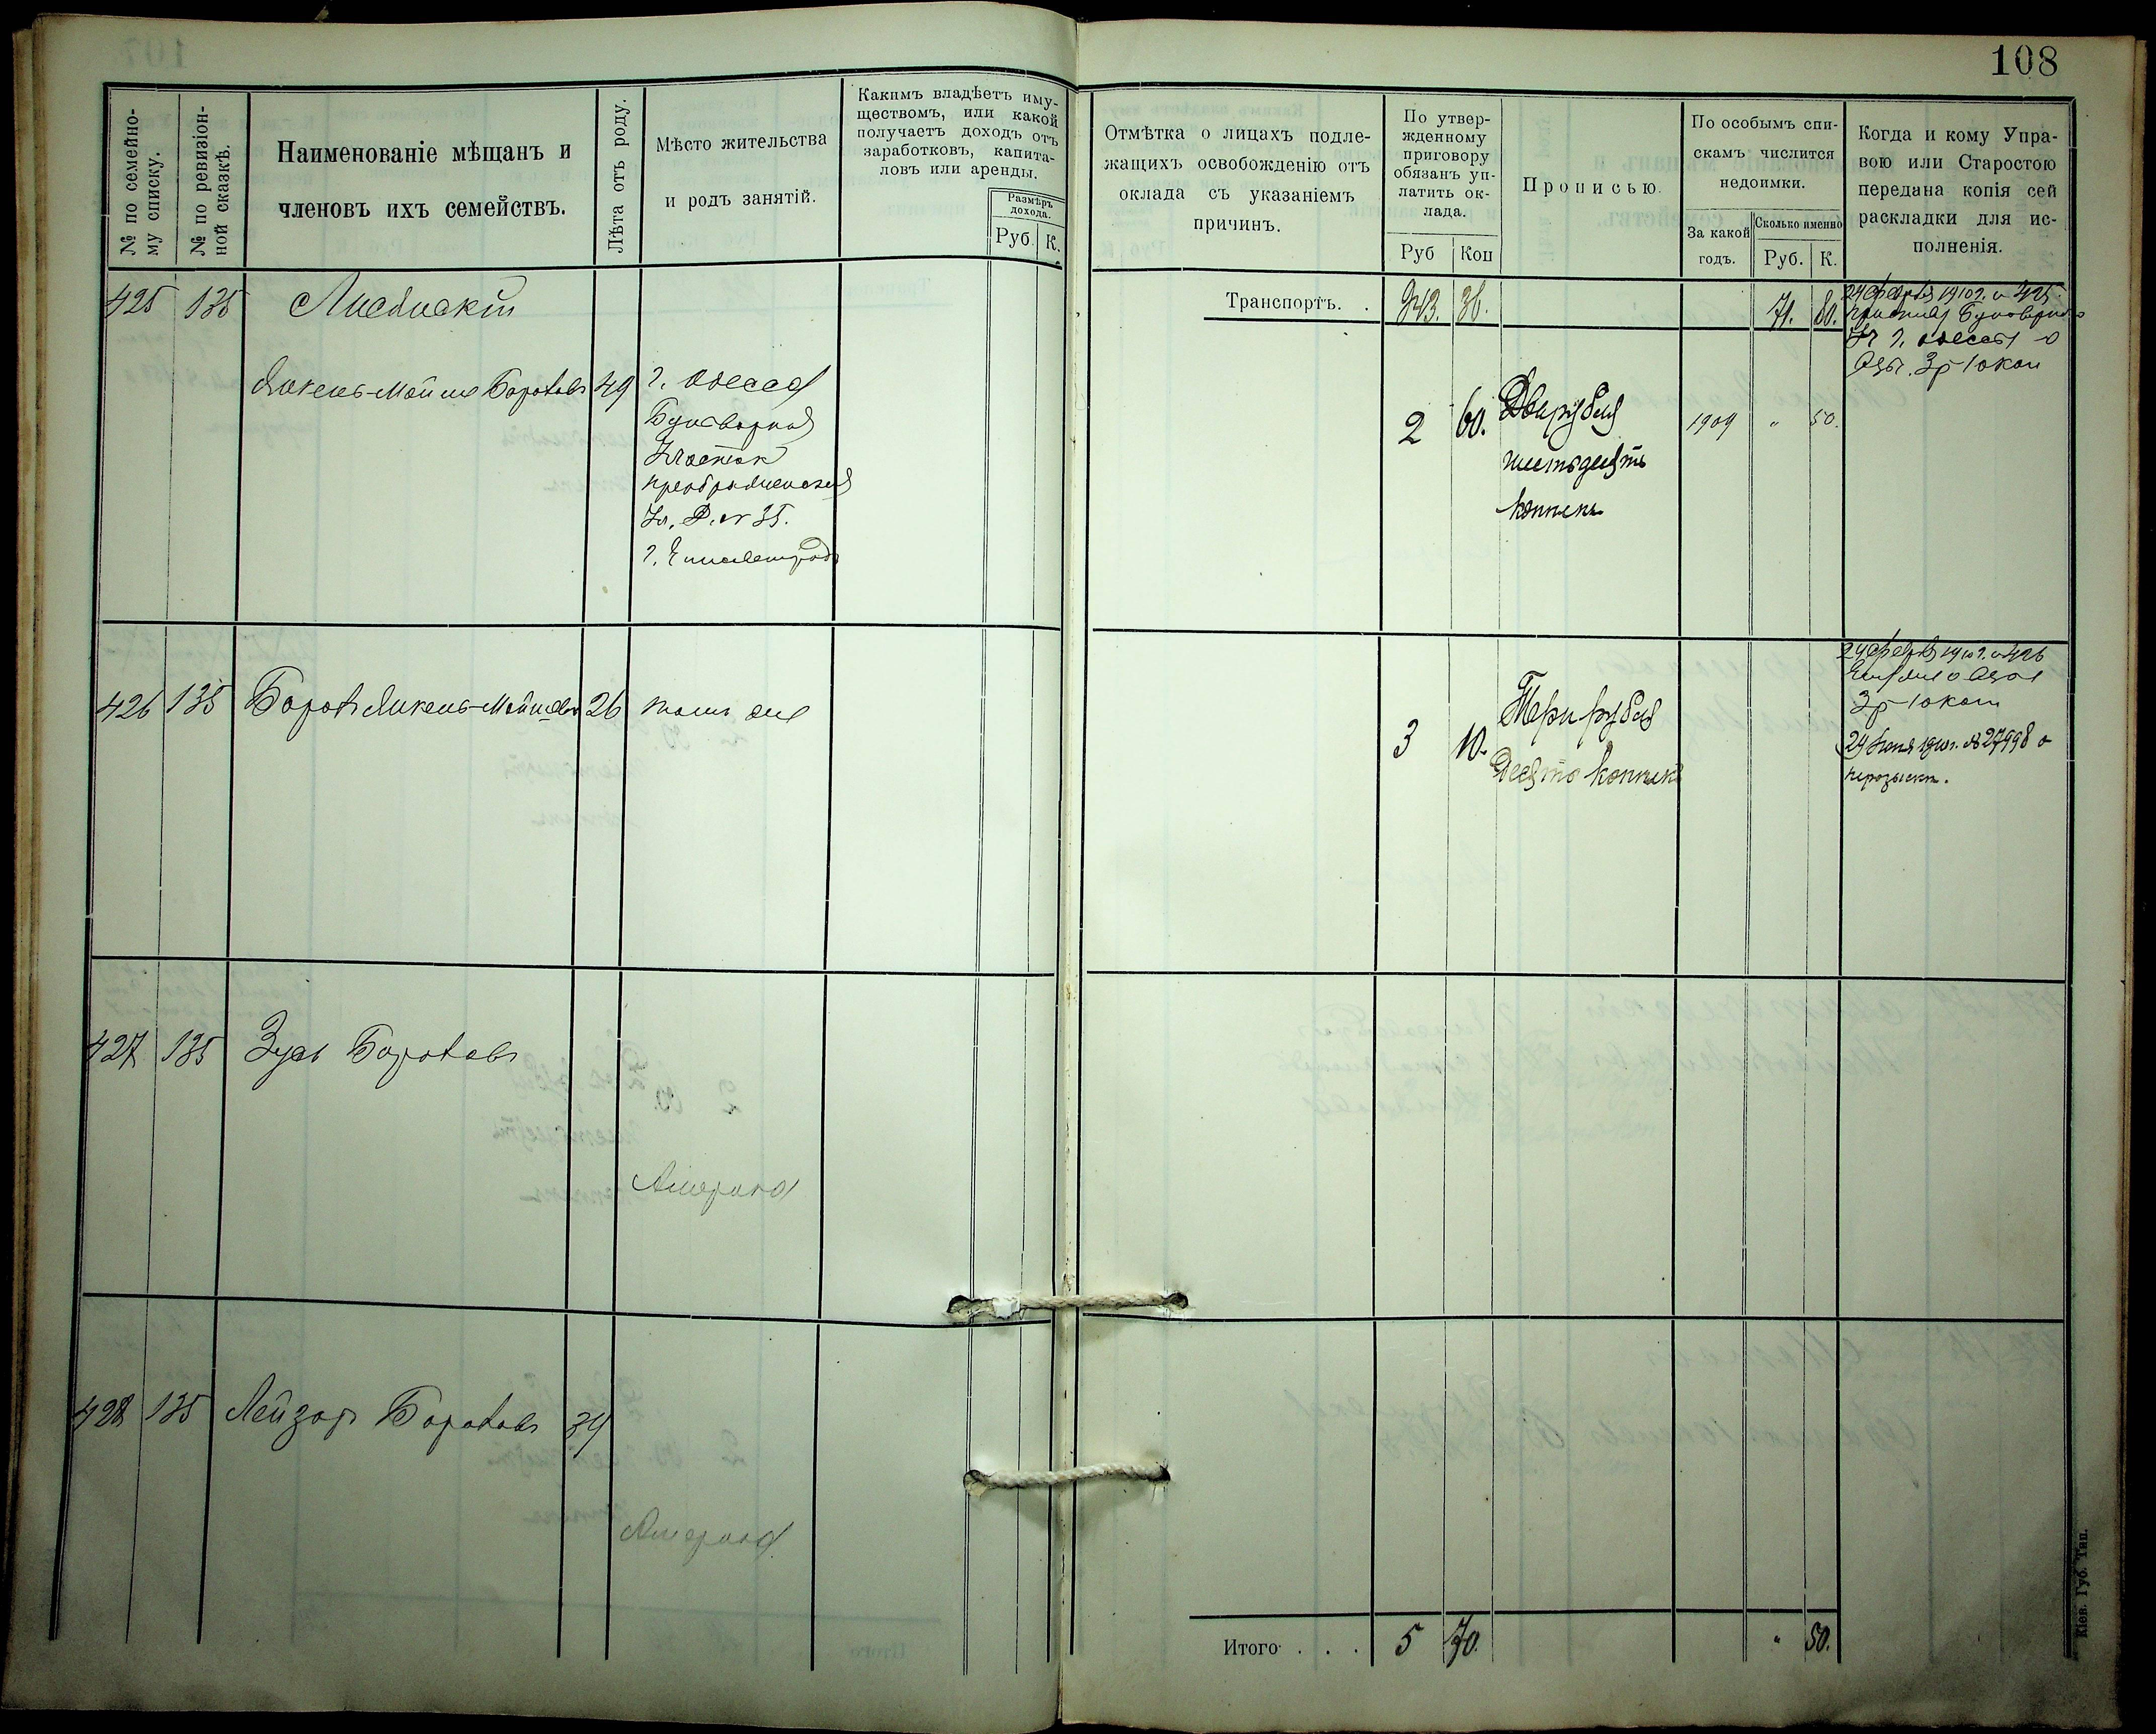 108
№ по семейно-
му списку.
№ по ревизіон-
ной сказкѣ.
Наименованіе мѣщанъ и
членовъ ихъ семействъ.
Лѣта отъ роду.
Мѣсто жительства
и родъ занятій.
Какимъ владѣетъ иму-
ществомъ, или какой
получаетъ доходъ отъ
заработковъ, капита-
ловъ или аренды.
Размѣръ
дохода.
Руб. К.
Отмѣтка о лицахъ подле-
жащихъ освобожденію отъ
оклада съ указаніемъ
причинъ.
По утвер-
жденному
приговору
обязанъ уп-
латить ок-
лада.
Руб Коп
Прописью.
По особымъ спи-
скамъ числится
недоимки.
За какой
годъ.
Сколько именно
Руб. К.
Когда и кому Упра-
вою или Старостою
передана копія сей
раскладки для ис-
полненія.
425 135
Транспортъ. . 943. 36. 71. 80.
24 1910 г. 425
Янкель-Мойше Бороховъ 49
г. Одесса
Бульварный
Участок
преображенская
Ул. Д. № 35.
г. Елисаветградъ
2 60. Два рубля
шестьдесятъ
копѣекъ
1909 " 50.
г. Одессы о
3 р 10 коп
426 135 Борохъ Янкель-Мойшевъ 26
3 10. Три рубля
Десять копѣекъ
24 1910 г. 426
3 р 10 коп
24 1910 г. № 27998 о
427 135 Зусь Бороховъ
Америка
428 135 Лейзоръ Бороховъ 34
Америка
Итого . . . 5 70. " 50.
Кіев. Губ. Тип.